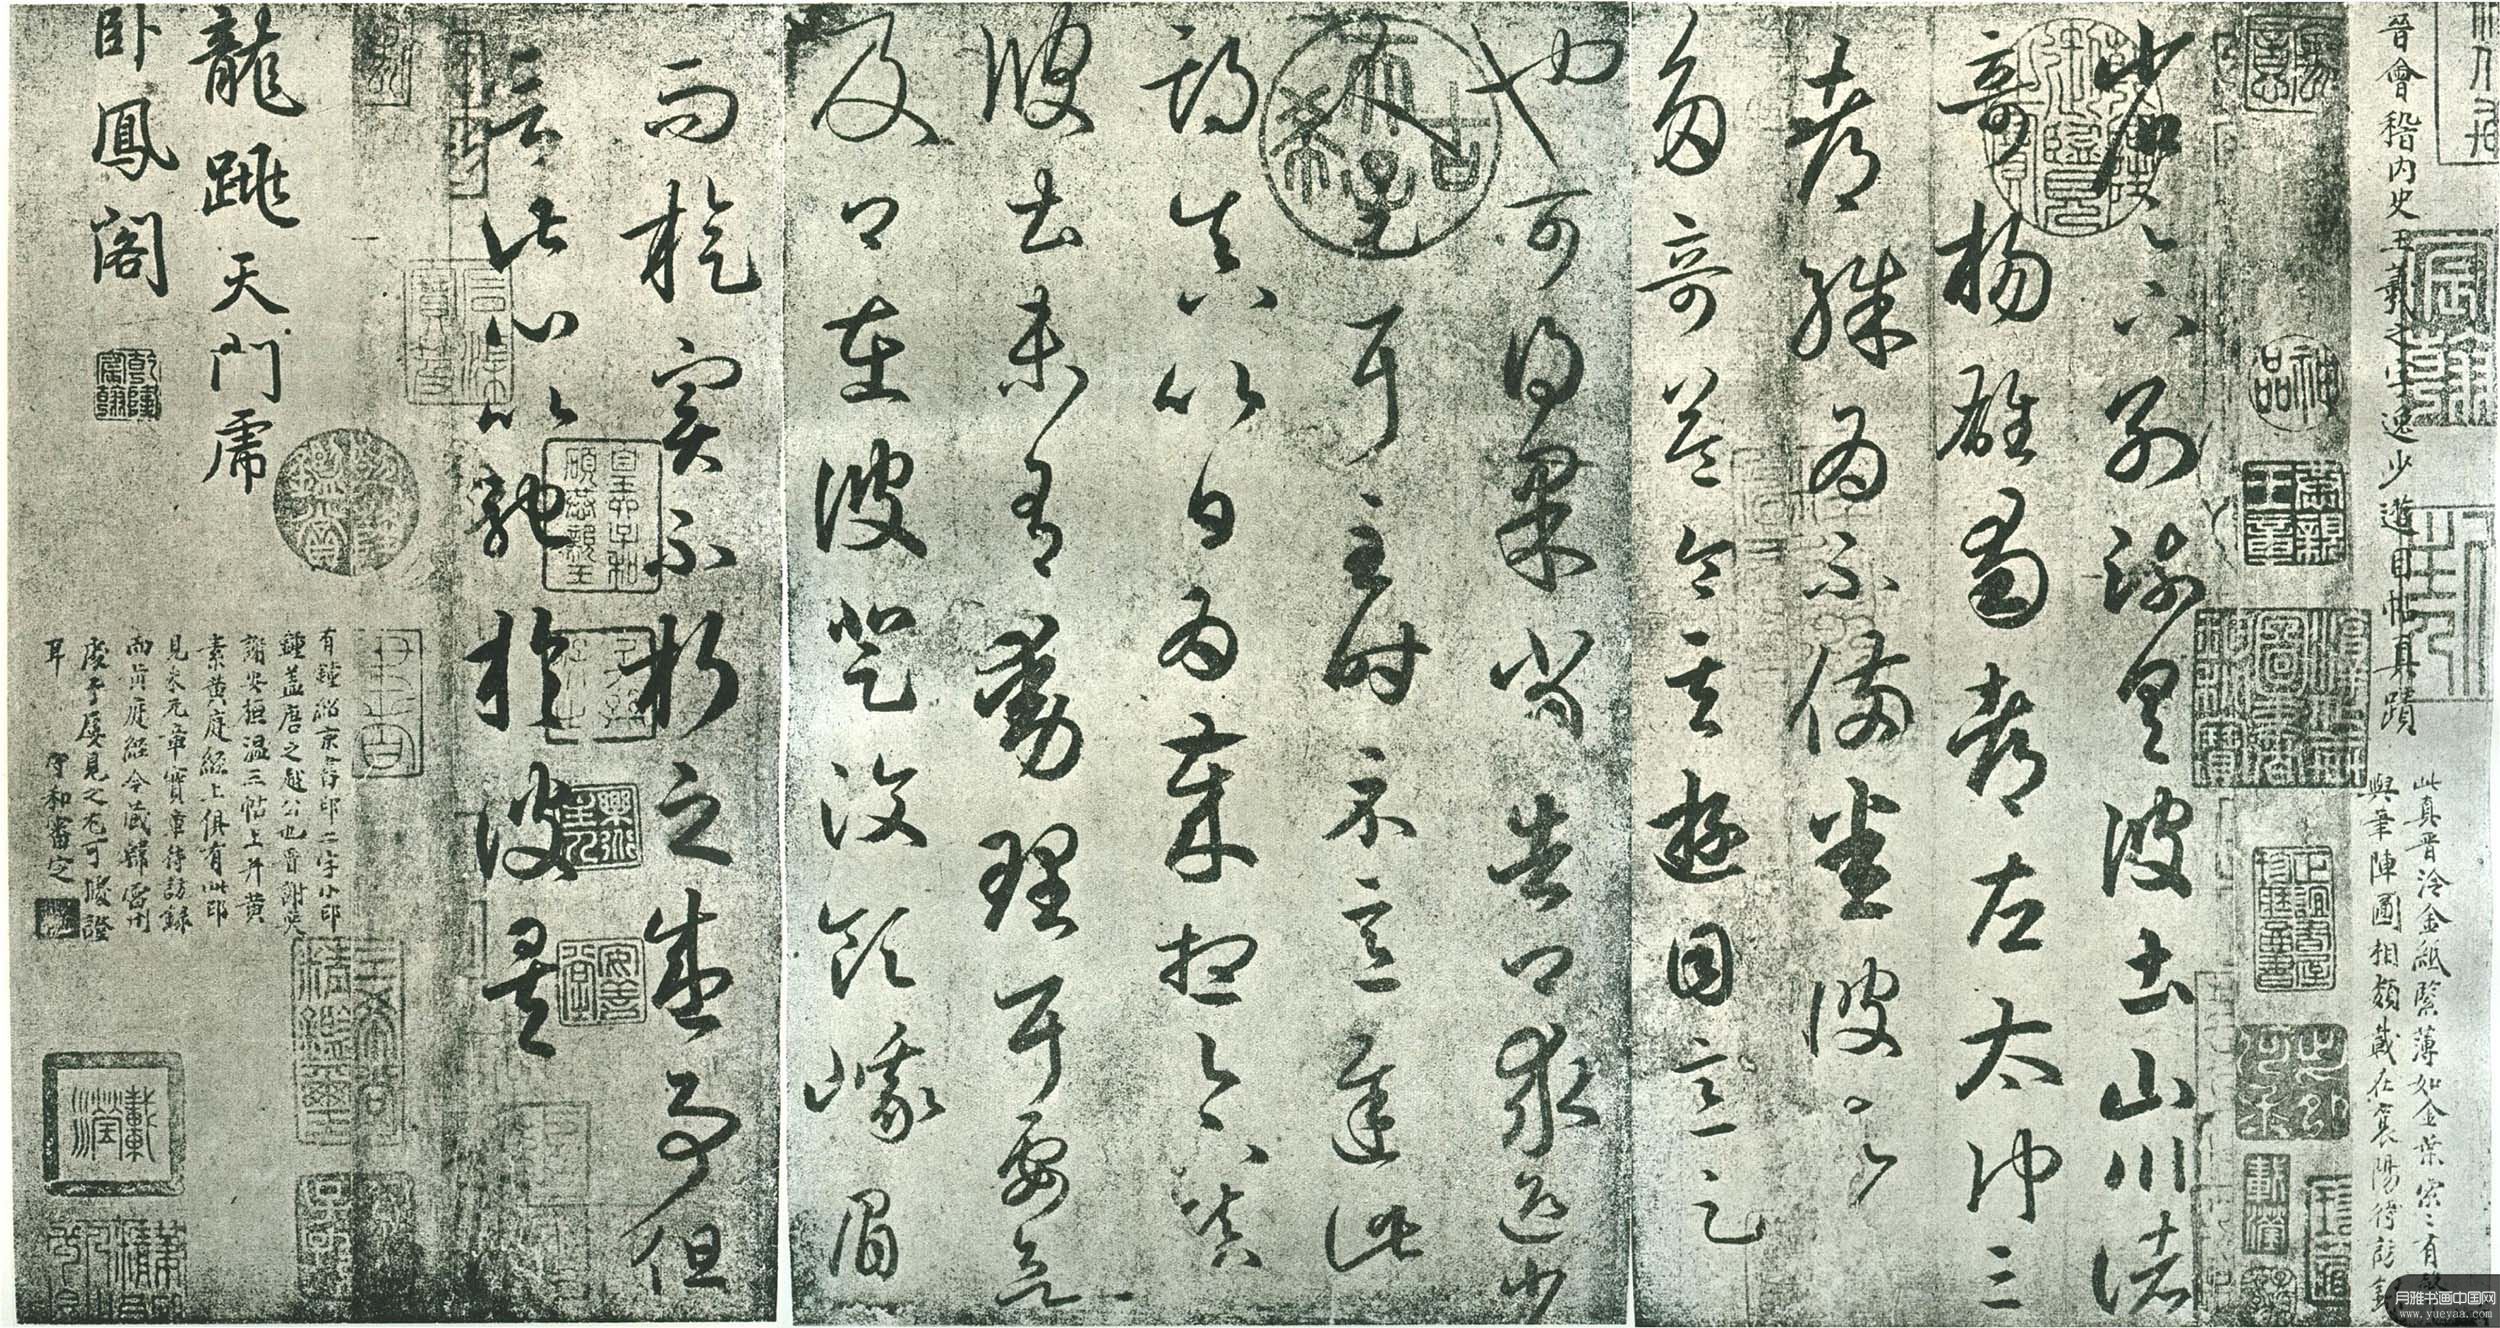 晉會稽内史王羲之字逸少遊目帖真蹟
此真晉冷金紙緊薄如金葉索〻有聲
與筆陣圖相類藏在襄陽待訪
神品
省足下別疏具彼土山川諸
奇楊雄蜀都左太沖三
都殊為不備悉彼故為
多奇益令其遊目意足
也可得果當告卿求迎少
人足耳至時示意遲此
期真以日為歲想足下鎮
彼土未有動理耳要欲
及卿在彼登汶領峨眉
而旋實不朽之盛事但
言此心以馳於彼矣
古希天子
乾隆鑑賞
三希堂精鑑璽
宜子孫
有鍾紹京書印二字小印
鍾蓋唐之越公也昔謝奕
謝安桓溫三帖上并黃
素黃庭經上俱有此印
見米元章寶章待訪錄
而黃庭經今藏韓
處予屢見之尤可據證
耳 守和審定
龍跳天門虎
臥鳳閣
乾隆宸翰
月雅书画中国网
www.yueyaa.com